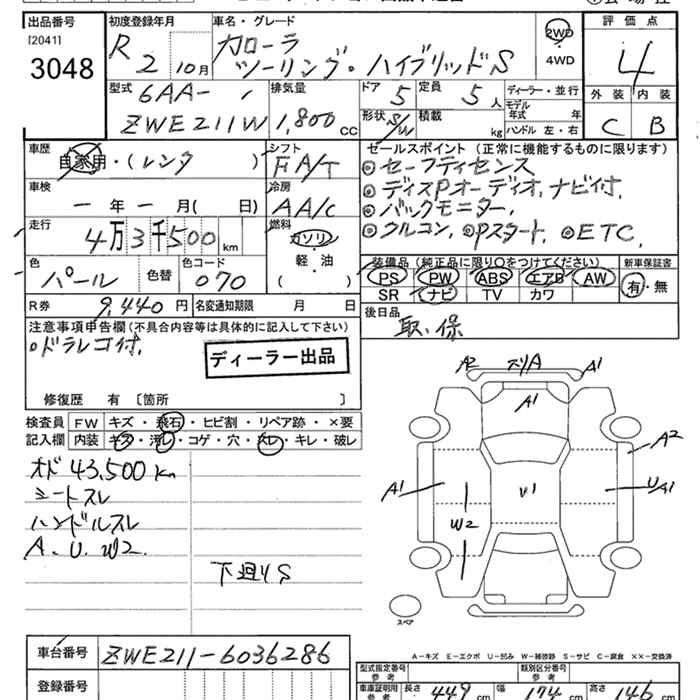 出品番号 初度登録年月 車名・グレード 評価点
[2041] R 2 10月 カローラ 2WD 4
3048 ツーリング・ハイブリッドS 4WD
型式 排気量 ドア 定員 ディーラー・並行 外装 内装
6AA- 5 5人 モデル年式 年式
ZWE211W 1,800cc 形状 S/W 積載 kg ハンドル 左・右 C B
車歴 シフト セールスポイント(正常に機能するものに限ります)
自家用・(レンタ) FA/T ◎セーフティセンス
車検 冷房 ◎ディスPオーディオ,ナビ付,
ー年ー月(日) AA/C ◎バックモニター,
走行 燃料 ◎クルコン,◎Pスタート,◎ETC,
4万3千500km ガソリン 軽・油
色 色替 色コード 装備品(純正品に限り○をつけてください) 新車保証書
パール 070 PS PW ABS エアB AW 有・無
SR ナビ TV カワ
R券 9,440円 名変通知期限 月 日 後日品
取,保
注意事項申告欄(不具合内容等は具体的に記入して下さい)
・ドラレコ付,
ディーラー出品
修復歴 有〔箇所 〕
検査員 FW キズ・飛石・ヒビ割・リペア跡・×要
記入欄 内装 キズ・汚レ・コゲ・穴・スレ・キレ・破レ
オド 43,500km
シートスレ
ハンドルスレ
A.U.W2.
下廻りS
A2 スリA A1
A1
A2
A1 U1 U/A1
W2
スペア
A-キズ E-エクボ U-凹み W-補修跡 S-サビ C-腐食 ××-交換済
車台番号 ZWE211-6036286
登録番号
型式指定番号 参考 類別区分番号 参考
車庫証明用 参考 長さ 449cm 幅 174cm 高さ 146cm